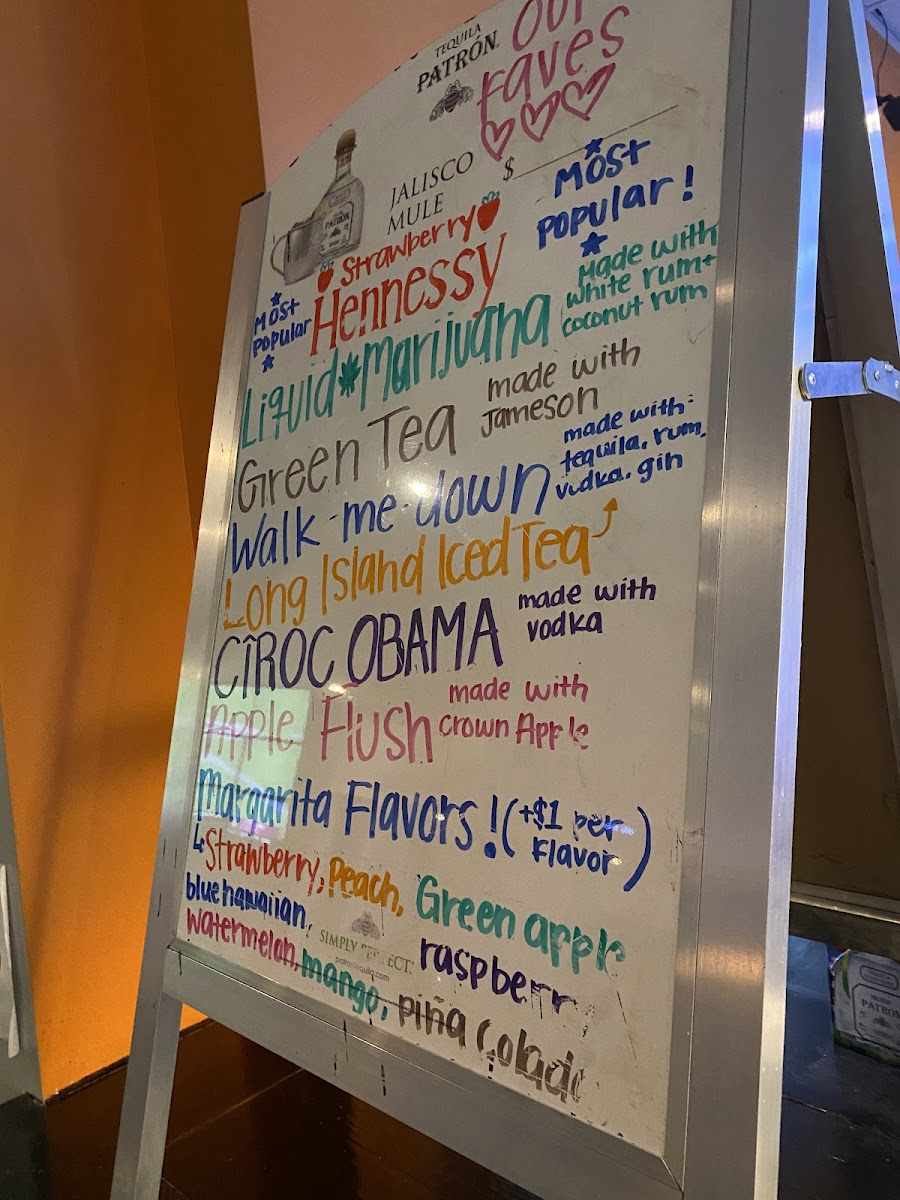 TEQUILA
PATRÓN
our
Faves
JALISCO
MULE
$
MOST
POPULAR!
Strawberry
Hennessy
MOST
Popular
Liquid Marijuana
Made with
white rum +
coconut rum
Green Tea
made with
Jameson
Walk-me-down
made with:
tequila, rum,
vodka, gin
Long Island Iced Tea
CÎROC OBAMA
made with
vodka
Apple Flush
made with
crown Apple
Margarita Flavors! (+$1 per
Flavor)
Strawberry, Peach, Green apple
blue hawaiian, raspberr
SIMPLY PERFECT.
patrontequila.com
watermelon, mango, Piña Colada
PATRÓN